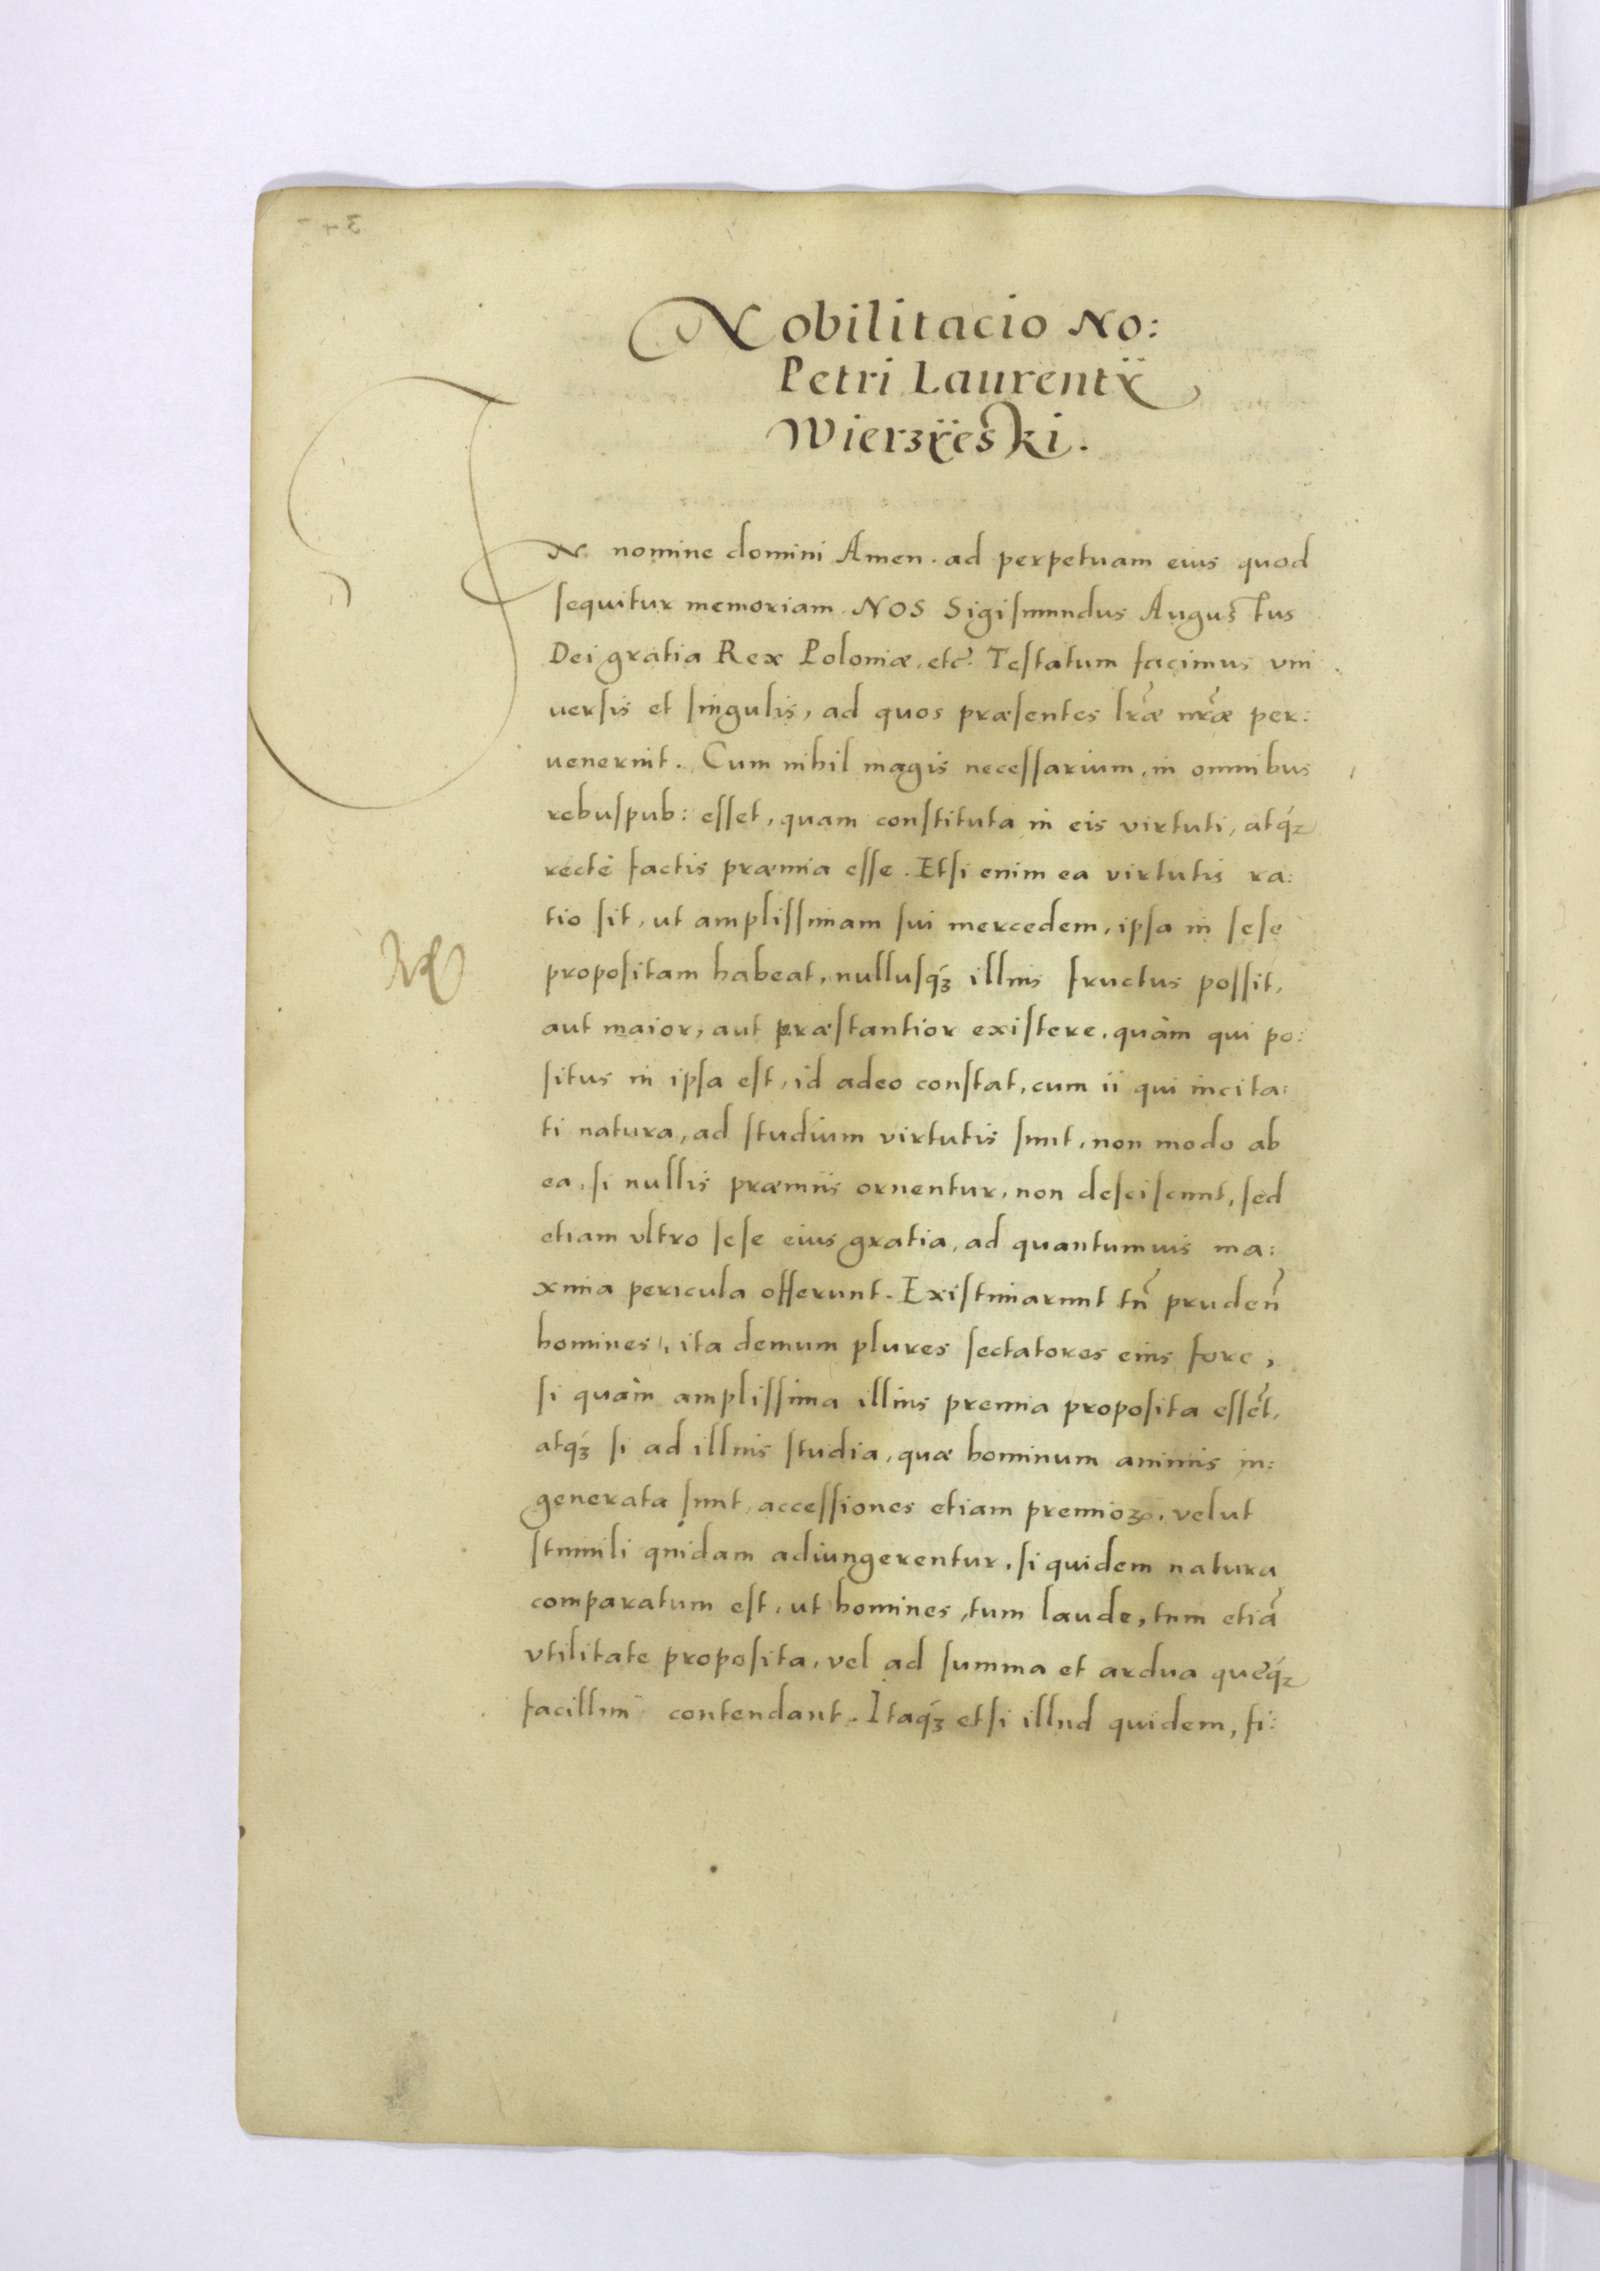 Nobilitacio No:
Petri Laurentÿ
Wierzÿeski.
IN nomine domini Amen. ad perpetuam eius quod
sequitur memoriam. NOS Sigismundus Augustus
Dei gratia Rex Poloniæ, etc̃. Testatum facimus vni
uersis et singulis, ad quos præsentes lr̃æ nr̃æ per:
uenerint. Cum nihil magis necessarium, in omnibus
rebuspub: esset, quam constituta in eis virtuti, atq́ꝫ
rectè factis præmia esse. Etsi enim ea virtutis ra:
tio sit, ut amplissimam sui mercedem, ipsa in sese
propositam habeat, nullusq́ꝫ illius fructus possit,
aut maior, aut præstantior existere, quàm qui po:
situs in ipsa est, id adeo constat, cum ii qui incita:
ti natura, ad studium virtutis sunt, non modo ab
ea, si nullis præmiis ornentur, non desciscunt, sed
etiam vltro sese eius gratia, ad quantumuis ma:
xima pericula offerunt. Existimarunt tñ pruden̄
homines, ita demum plures sectatores eius fore,
si quàm amplissima illius premia proposita essẽt,
atq́ꝫ si ad illius studia, quæ hominum animis in:
generata sunt, accessiones etiam premioꝝ, velut
stimuli quidam adiungerentur, si quidem natura
comparatum est, ut homines, tum laude, tum etiã
vtilitate proposita, vel ad summa et ardua quęq́ꝫ
contendant. Itaq́ꝫ etsi illud quidem, fi: